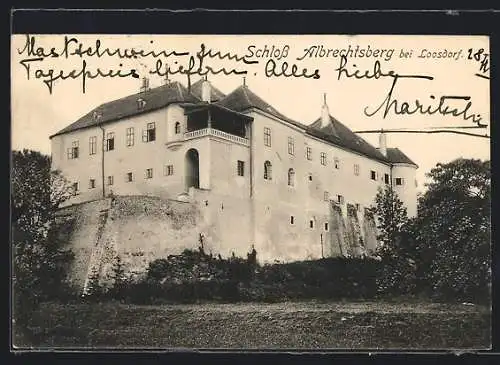 Schloß Albrechtsberg bei Loosdorf.
Maschwein zum
Tagespreis liefern. Alles hier
Maritsch